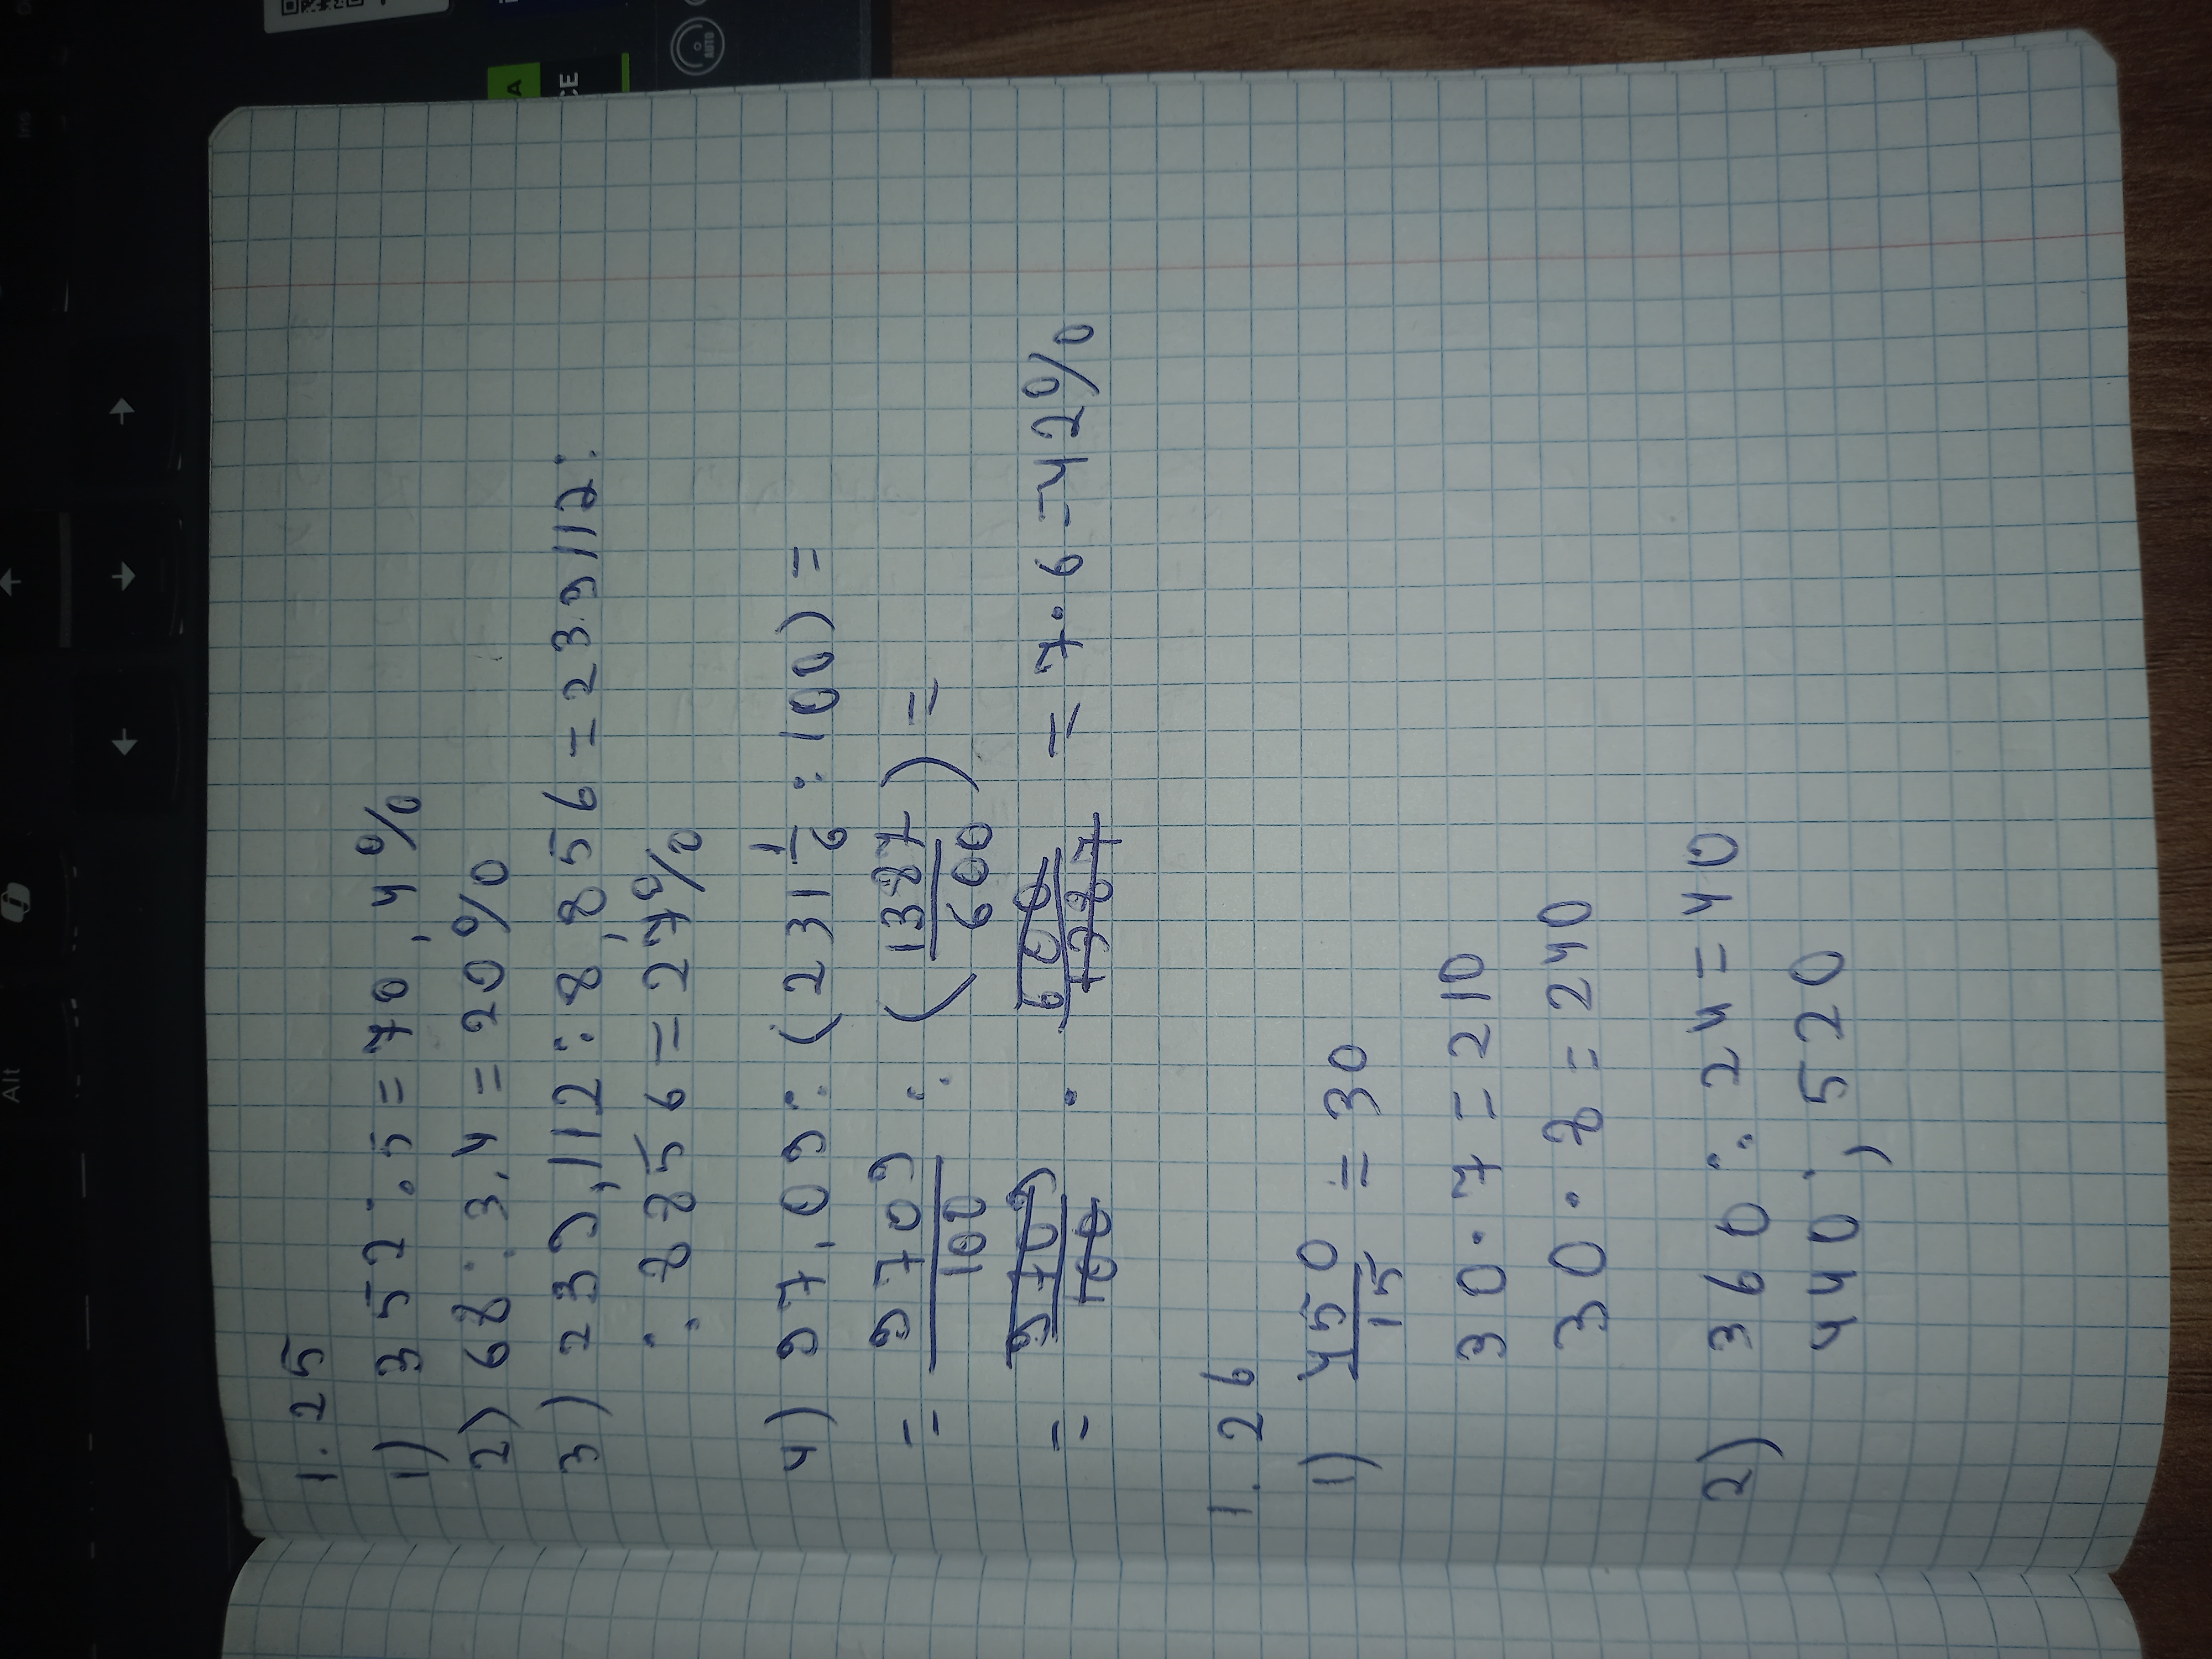 Alt
Ins
A
CE
AUTO
1.25
1) 352 : 5 = 70,4%
2) 68 : 3.4 = 20%
3) 239,112 : 8,856 = 239112 :
: 8856 = 27%
4) 97,09 : (231 1/6 : 100) =
= 9709/100 : (1387/600) =
= 9709/100 · 600/1387 = 7·6 = 42%
1.26
1) 450/15 = 30
30 · 7 = 210
30 · 8 = 240
2) 360 : 24 = 40
440 ; 520